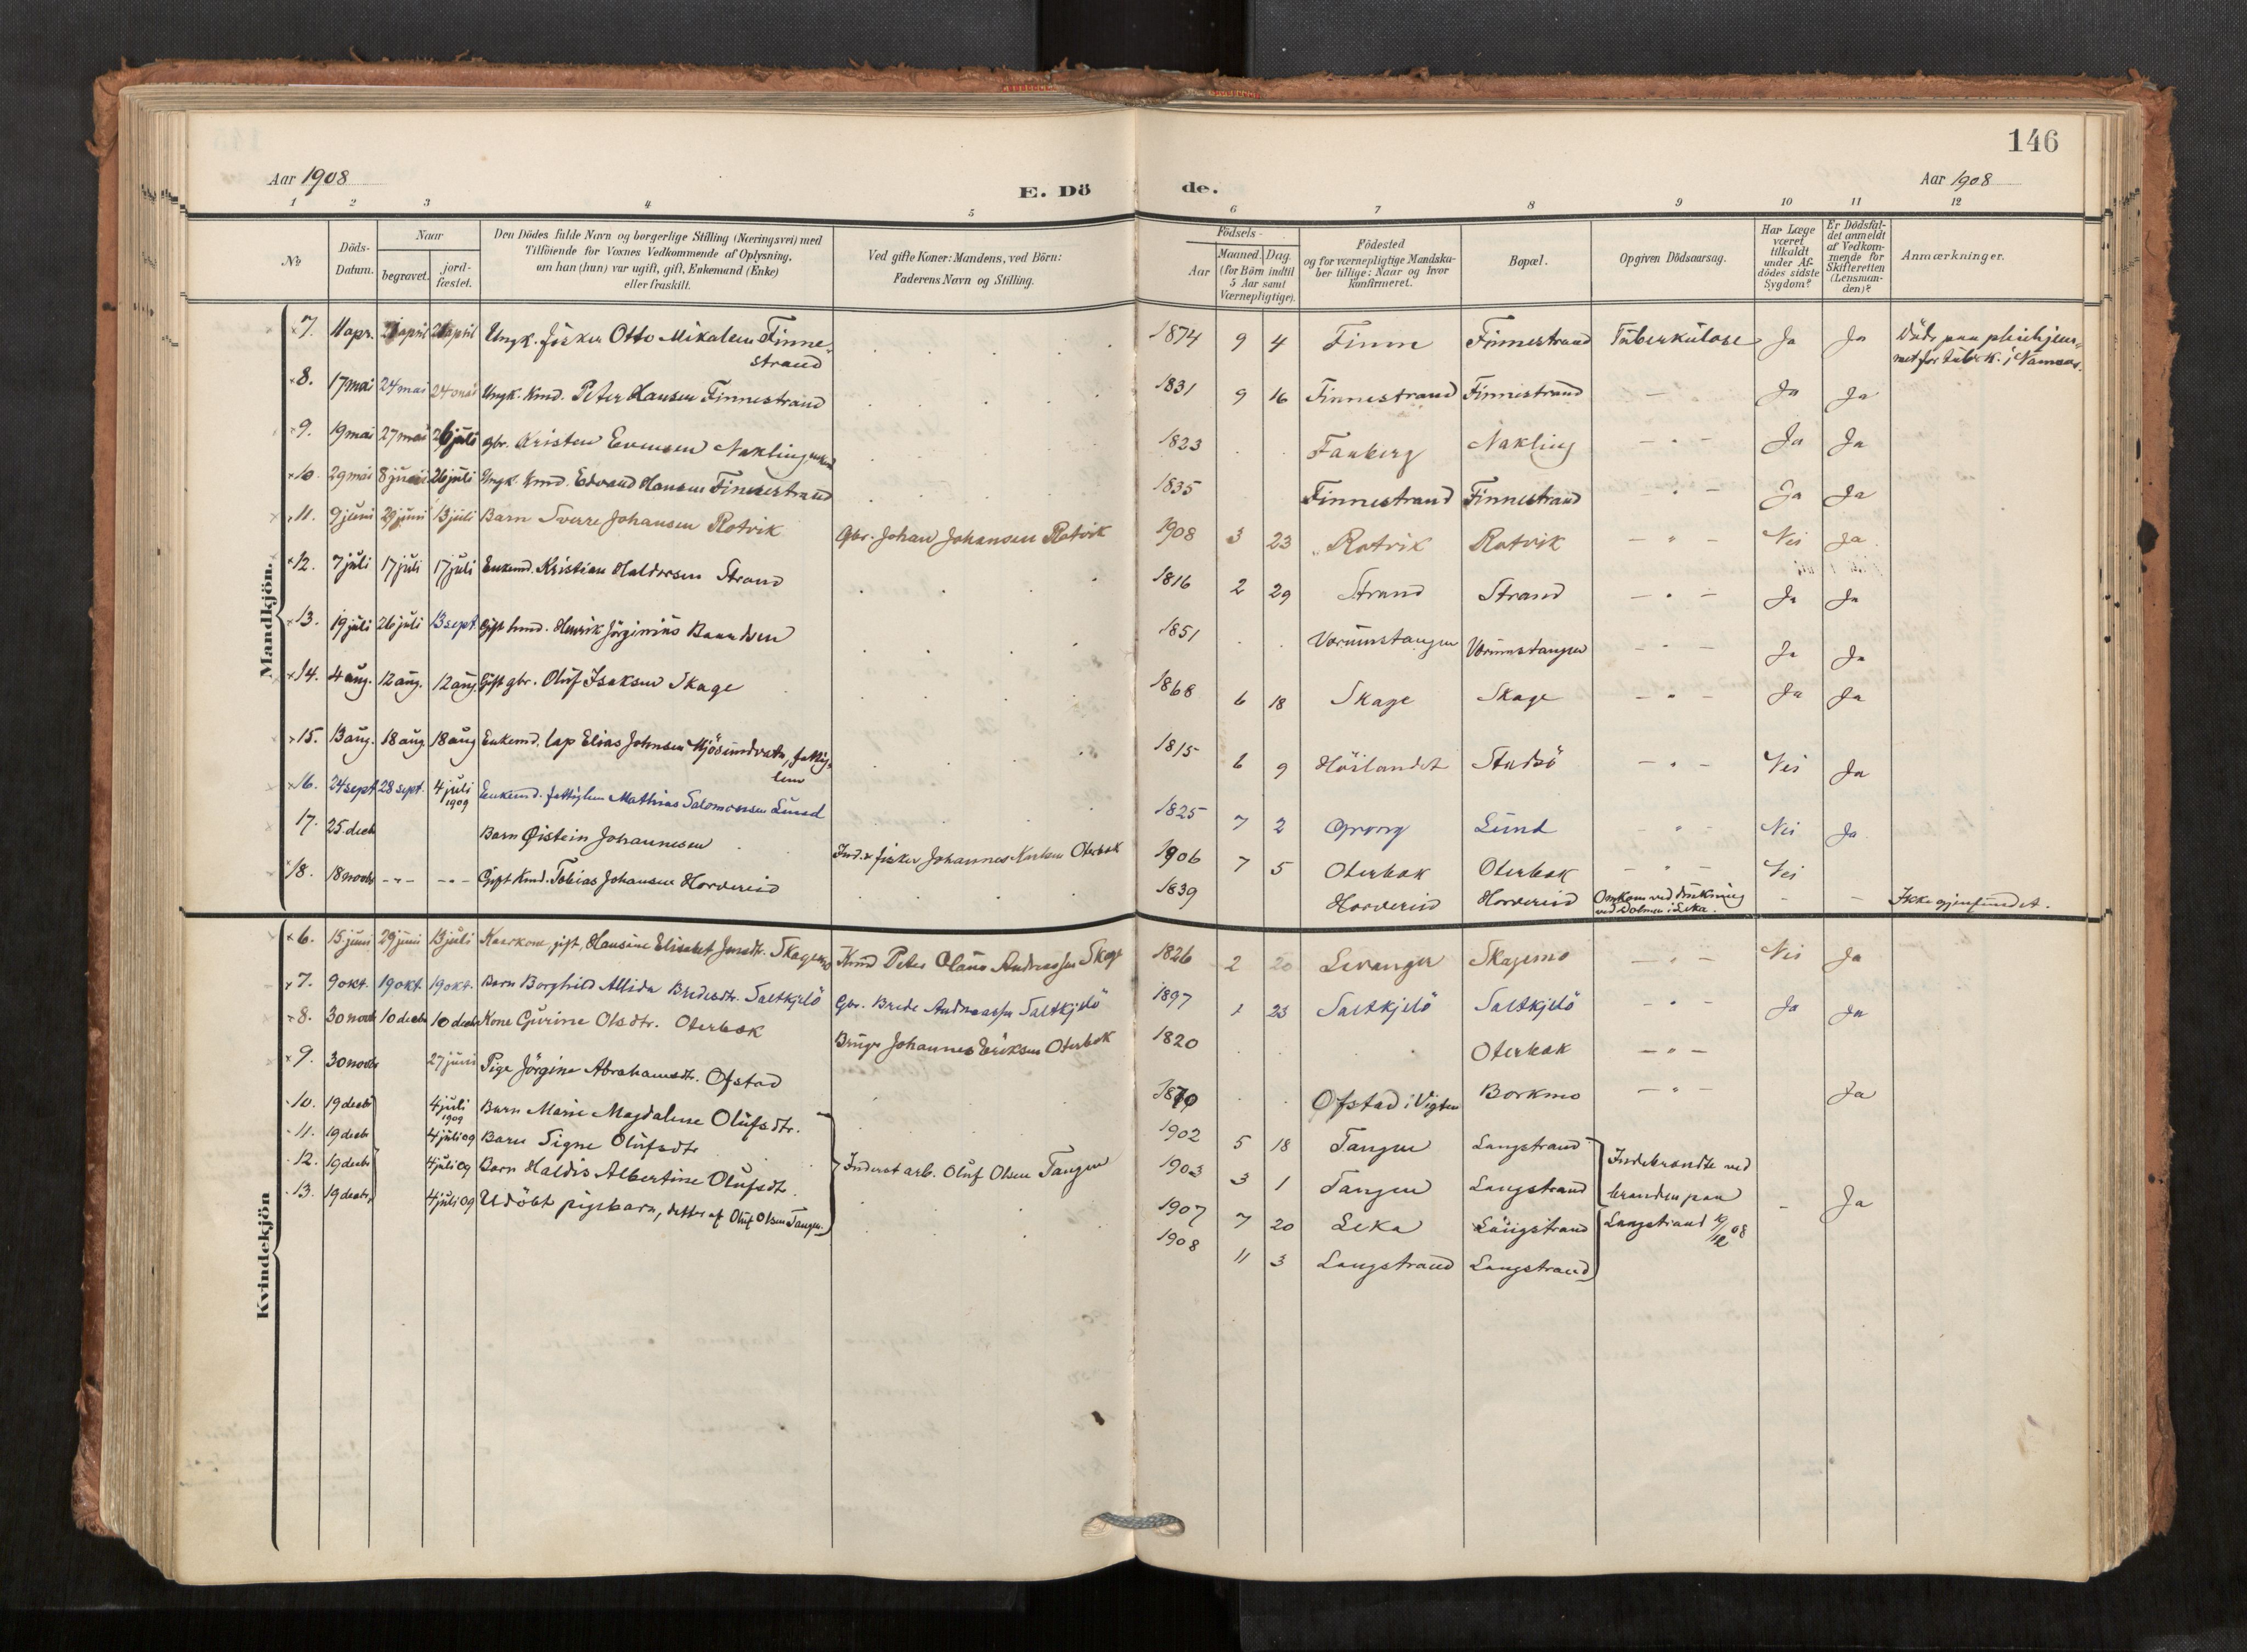 146
Aar 1908
E. Dö
de.
Aar 1908
1 2 3 4 5 6 7 8 9 10 11 12
No
Döds-
Datum.
Naar
begravet.
jord-
fæstet.
Den Dödes fulde Navn og borgerlige Stilling (Næringsvei) med
Tilföiende for Voxnes Vedkommende af Oplysning,
om han (hun) var ugift, gift, Enkemand (Enke)
eller fraskilt.
Ved gifte Koner: Mandens, ved Börn:
Faderens Navn og Stilling.
Födsels-
Aar
Maaned. Dag.
(for Börn indtil
5 Aar samt
Værnepligtige).
Födested
og for værnepligtige Mandska-
ber tillige: Naar og hvor
konfirmeret.
Bopæl.
Opgiven Dödsaarsag.
Har Læge
været
tilkaldt
under Af-
dödes sidste
Sygdom?
Er Dödsfal-
det anmeldt
af Vedkom-
mende for
Skifteretten
(Lensman-
den)?
Anmærkninger.
Mandkjön.
7. 11 apr. 21 april 21 april Ungk. fisker Otto Mikalsen Finne-
strand
1874 9 4 Finne Finnestrand Tuberkulose Ja Ja Döde paa pleiehjem-
met for tuberk. i Namsos.
8. 17 mai 24 mai 24 mai Ungk. kmd. Peter Hansen Finnestrand 1831 9 16 Finnestrand Finnestrand — Ja Ja
9. 19 mai 27 mai 26 juli gbr. Kristen Evensen Nakling 1823 Faaberg Nakling — " — Ja Ja
10. 29 mai 8 juni 26 juli Ungk. kmd. Edvard Hansen Finnestrand 1835 Finnestrand Finnestrand — " — Ja Ja
11. 9 juni 29 juni 13 juli Barn Sverre Johansen Rotvik Gbr. Johan Johansen Rotvik 1908 3 23 Rotvik Rotvik — " — Nei Ja
12. 7 juli 17 juli 17 juli Enkemd. Kristian Haldorsen Strand 1816 2 29 Strand Strand — " — Ja Ja
13. 19 juli 26 juli 13 sept. Gift kmd. Henrik Jörginius 1851 Værumstangen Værumstangen — " — Ja Ja
14. 4 aug. 12 aug. 12 aug. Gift gbr. Oluf Isaksen Skage 1868 6 18 Skage Skage — " — Ja Ja
15. 13 aug. 18 aug. 18 aug Enkemd. lap Elias Johnsen Mjösundvatn, fattig-
lem
1815 6 9 Höilandet Studsö — " — Nei Ja
16. 24 sept 28 sept. 4 juli
1909
Enkemd. fattiglem Mathias Salomonsen Lund 1825 7 2 Lund " Nei Ja
17. 25 decb Barn Øistein Johannesen Ind. & fisker Johannes Oterbak 1906 7 5 Oterbak Oterbak — " — Nei
18. 18 novb — " — — " — Gift Kmd. Tobias Johansen Horvereid 1839 Horvereid Horvereid Omkom ved drukning
ved Dolmen i Leka. — — Ikke gjenfundet.
Kvindekjön
6. 15 juni 29 juni 13 juli Kaarkone, gift, Hansine Elisabet Jensdtr. Skagemo Kmd Peter Olaus Andreassen Skage 1826 2 20 Levanger Skagemo — " — Nei Ja
7. 9 okt. 19 okt. 19 okt. Barn Borghild Allida Bredesdtr. Saltkjelö Gbr. Brede Andreassen Saltkjelö 1897 1 23 Saltkjelö Saltkjelö — " — Ja Ja
8. 30 novb 10 decb 10 decb Kone Gurine Olsdtr. Oterbak Bruger Johannes Eriksen Oterbak 1820 Oterbak — " —
9. 30 novb 27 juni Pige Jörgine Abrahamsdtr. Ofstad 1870 Ofstad i Vigten Borkmo — " — Ja
10. 19 decb 4 juli
1909
Barn Marie Magdalene Olufsdtr. 1902 5 18 Tangen Langstrand
11. 19 decb 4 juli 09 Barn Signe Olufsdtr 1903 3 1 Tangen Langstrand
12. 19 decb 4 juli 09 Barn Haldis Albertine Olufsdtr. 1907 7 20 Leka Langstrand
13. 19 decb 4 juli 09 Udöbt pigebarn, datter af Oluf Olsen Tangen. 1908 11 3 Langstrand Langstrand
Inderst arb. Oluf Olsen Tangen
Indebrændte ved
branden paa
Langstrand 19/12 08
— Ja